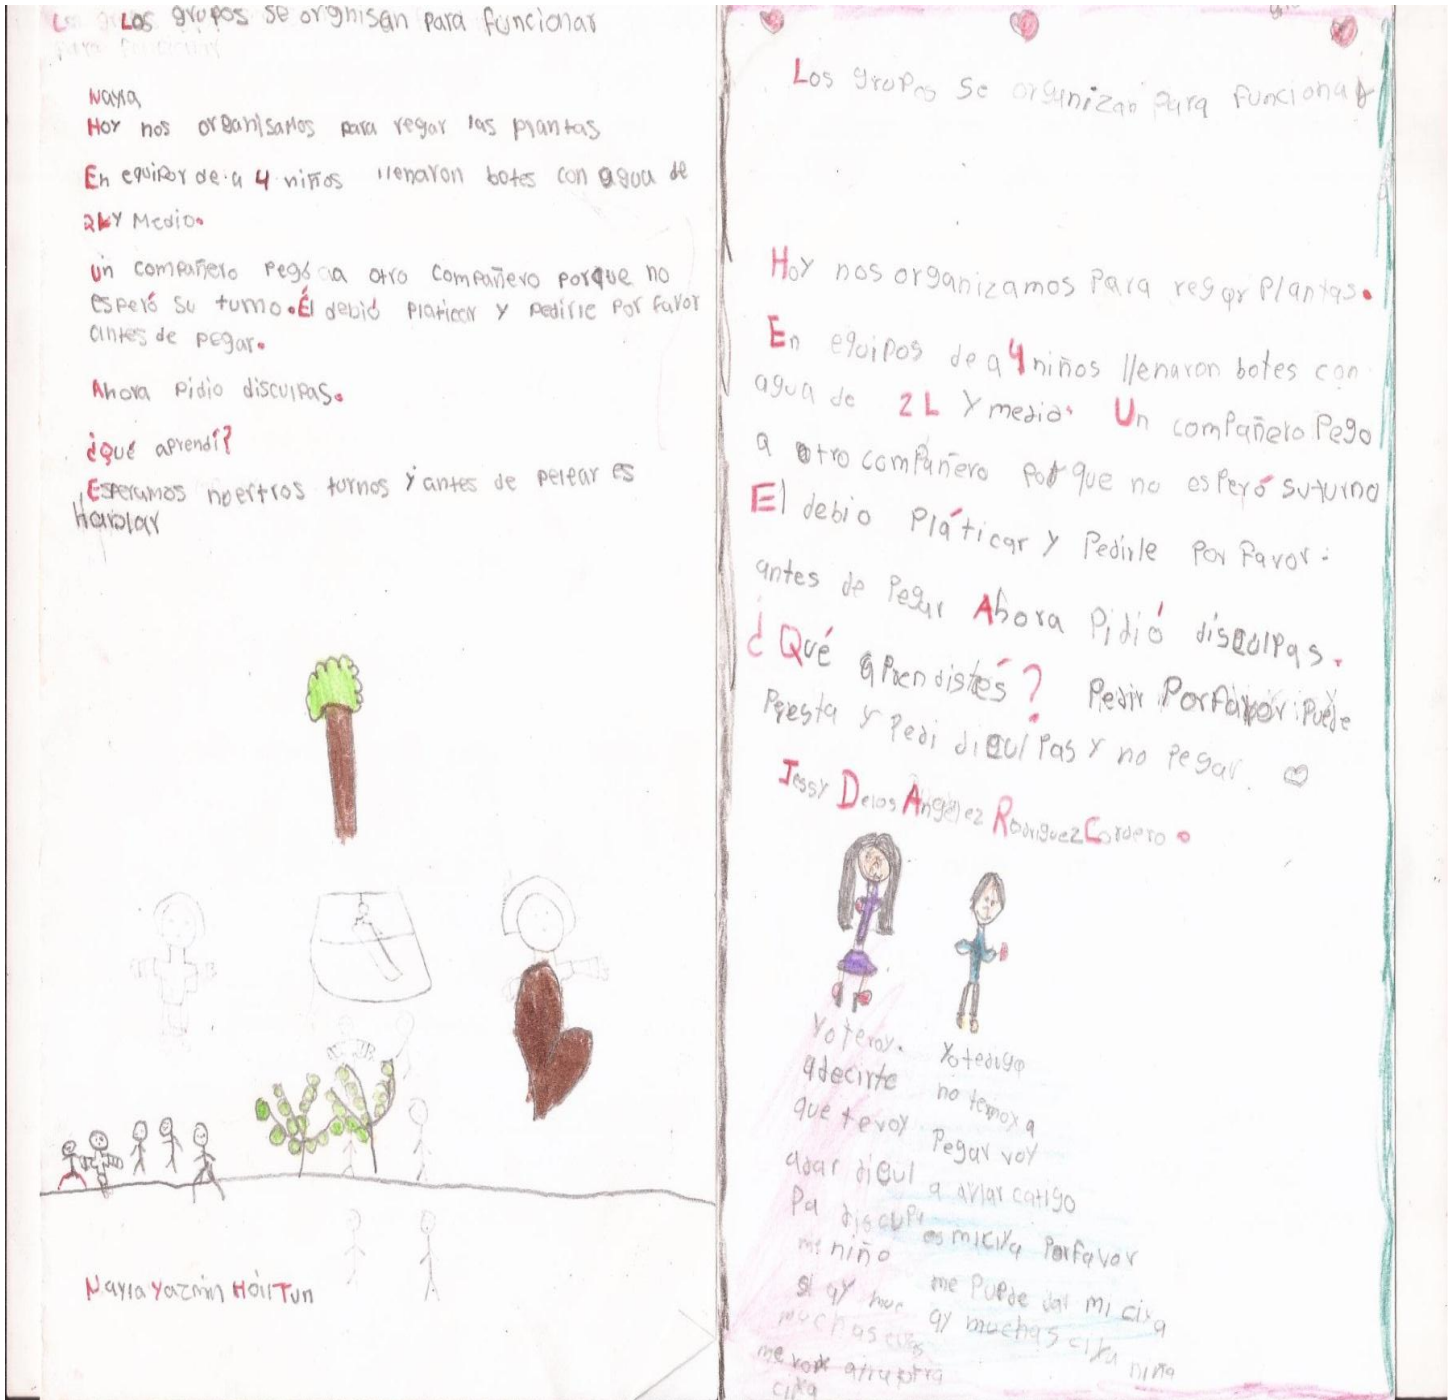 Los grupos se orignisan para funcionar
Nayra
Hoy nos organisamos para regar las plantas
En equipor de a 4 niños llenaron botes con agua de
2L y Medio.
Un compañero pegó a otro compañero porque no
esperó su turno. Él debió platicar y pedirle por favor
antes de pegar.
Ahora pidio disculpas.
¿Qué aprendí?
Esperamos noertros turnos y antes de pelear es
Hablar
Nayra Yazmin Hoil Tun
Los grupos se organizan para funcionar
Hoy nos organizamos para regar plantas.
En equipos de a 4 niños llenaron botes con
agua de 2 L y media. Un compañero pego
a otro compañero por que no esperó su turno
El debio pláticar y pedirle por favor.
antes de pegar Ahora pidió disculpas.
¿Qué aprendistés? Pedir Porfavor puede
Presta y pedi diculpas y no pegar
Jessy Delos Angelez Rodriguez Cordero.
Yo te voy.
adecirte
que te voy
adar dicul
Pa discupa
me niño
si ay muc
muchas
me voy
ciya
Yo te digo
no te voy a
Pegar voy
a avlar catigo
es mi ciya porfavor
me puede dar mi ciya
ay muchas ciya niña